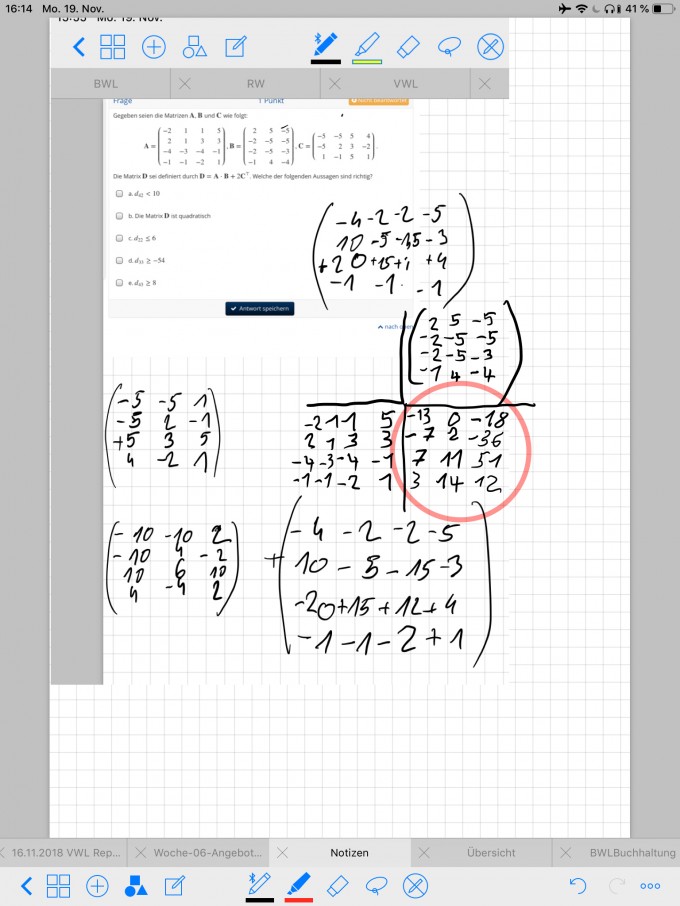 16:14 Mo. 19. Nov. 41 %
15:55 Mo. 19. Nov.
BWL RW VWL
Frage 1 Punkt
Gegeben seien die Matrizen A, B und C wie folgt:
A = (-2 1 1 5; 2 1 3 3; -4 -3 -4 -1; -1 -1 -2 1), B = (2 5 -5; -2 -5 -5; -2 -5 -3; -1 4 -4), C = (-5 -5 5 4; -5 2 3 -2; 1 -1 5 1).
Die Matrix D sei definiert durch D = A · B + 2Cᵀ. Welche der folgenden Aussagen sind richtig?
a. d₄₂ < 10
b. Die Matrix D ist quadratisch
c. d₂₂ ≤ 6
d. d₃₃ ≥ -54
e. d₄₁ ≥ 8
Antwort speichern
nach oben
-4 -2 -2 -5
10 -5 -15 -3
+20 +15 +1 +4
-1 -1 -1
2 5 -5
-2 -5 -5
-2 -5 -3
-1 4 -4
-5 -5 1
-5 2 -1
+5 3 5
4 -2 1
-2 1 1 5 -13 0 -18
2 1 3 3 -7 2 -36
-4 -3 -4 -1 7 11 51
-1 -1 -2 1 3 14 12
-10 -10 2
-10 4 -2
10 6 10
4 -4 2
+
-4 -2 -2 -5
10 -5 -15 -3
-20 +15 +12 +4
-1 -1 -2 +1
16.11.2018 VWL Rep... Woche-06-Angebot... Notizen Übersicht BWLBuchhaltung